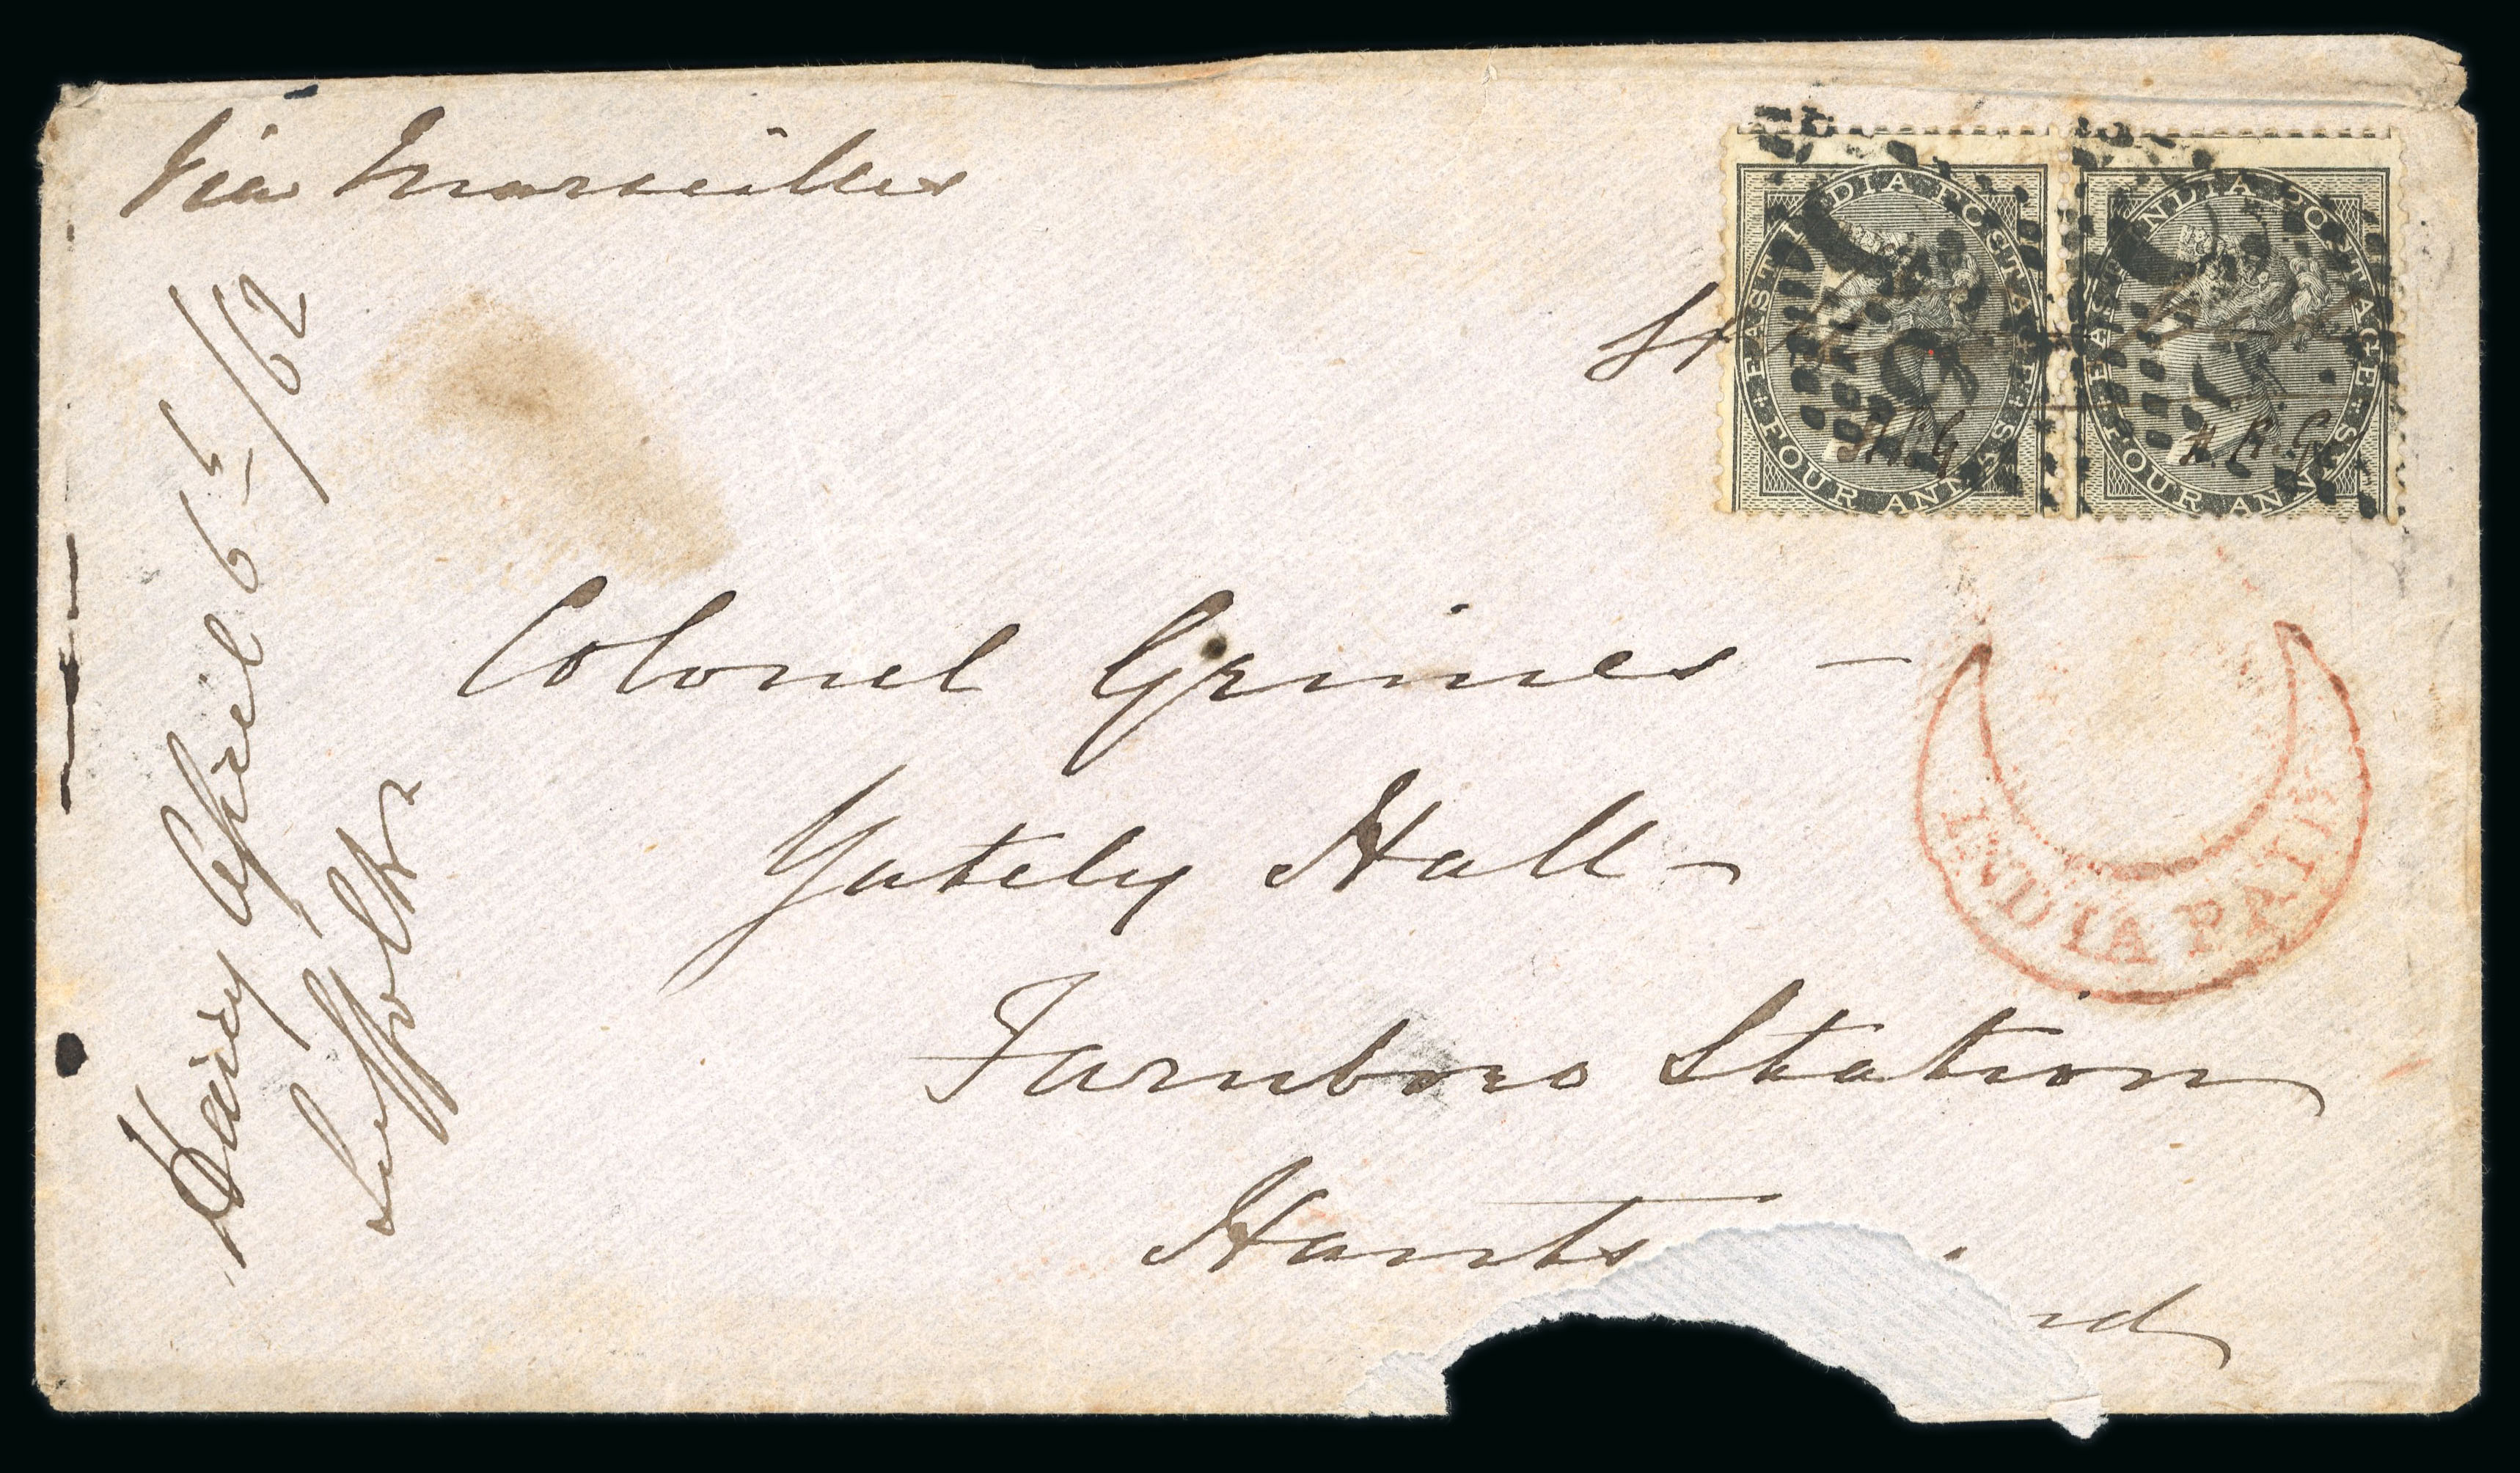 Via Marseilles
EAST INDIA POSTAGE
FOUR ANNAS
EAST INDIA POSTAGE
FOUR ANNAS
H.R.G
INDIA PAID
Colonel Grimes –
Yately Hall –
Farnboro Station
Hants
nd
Harry April 6 /62
Suffolk